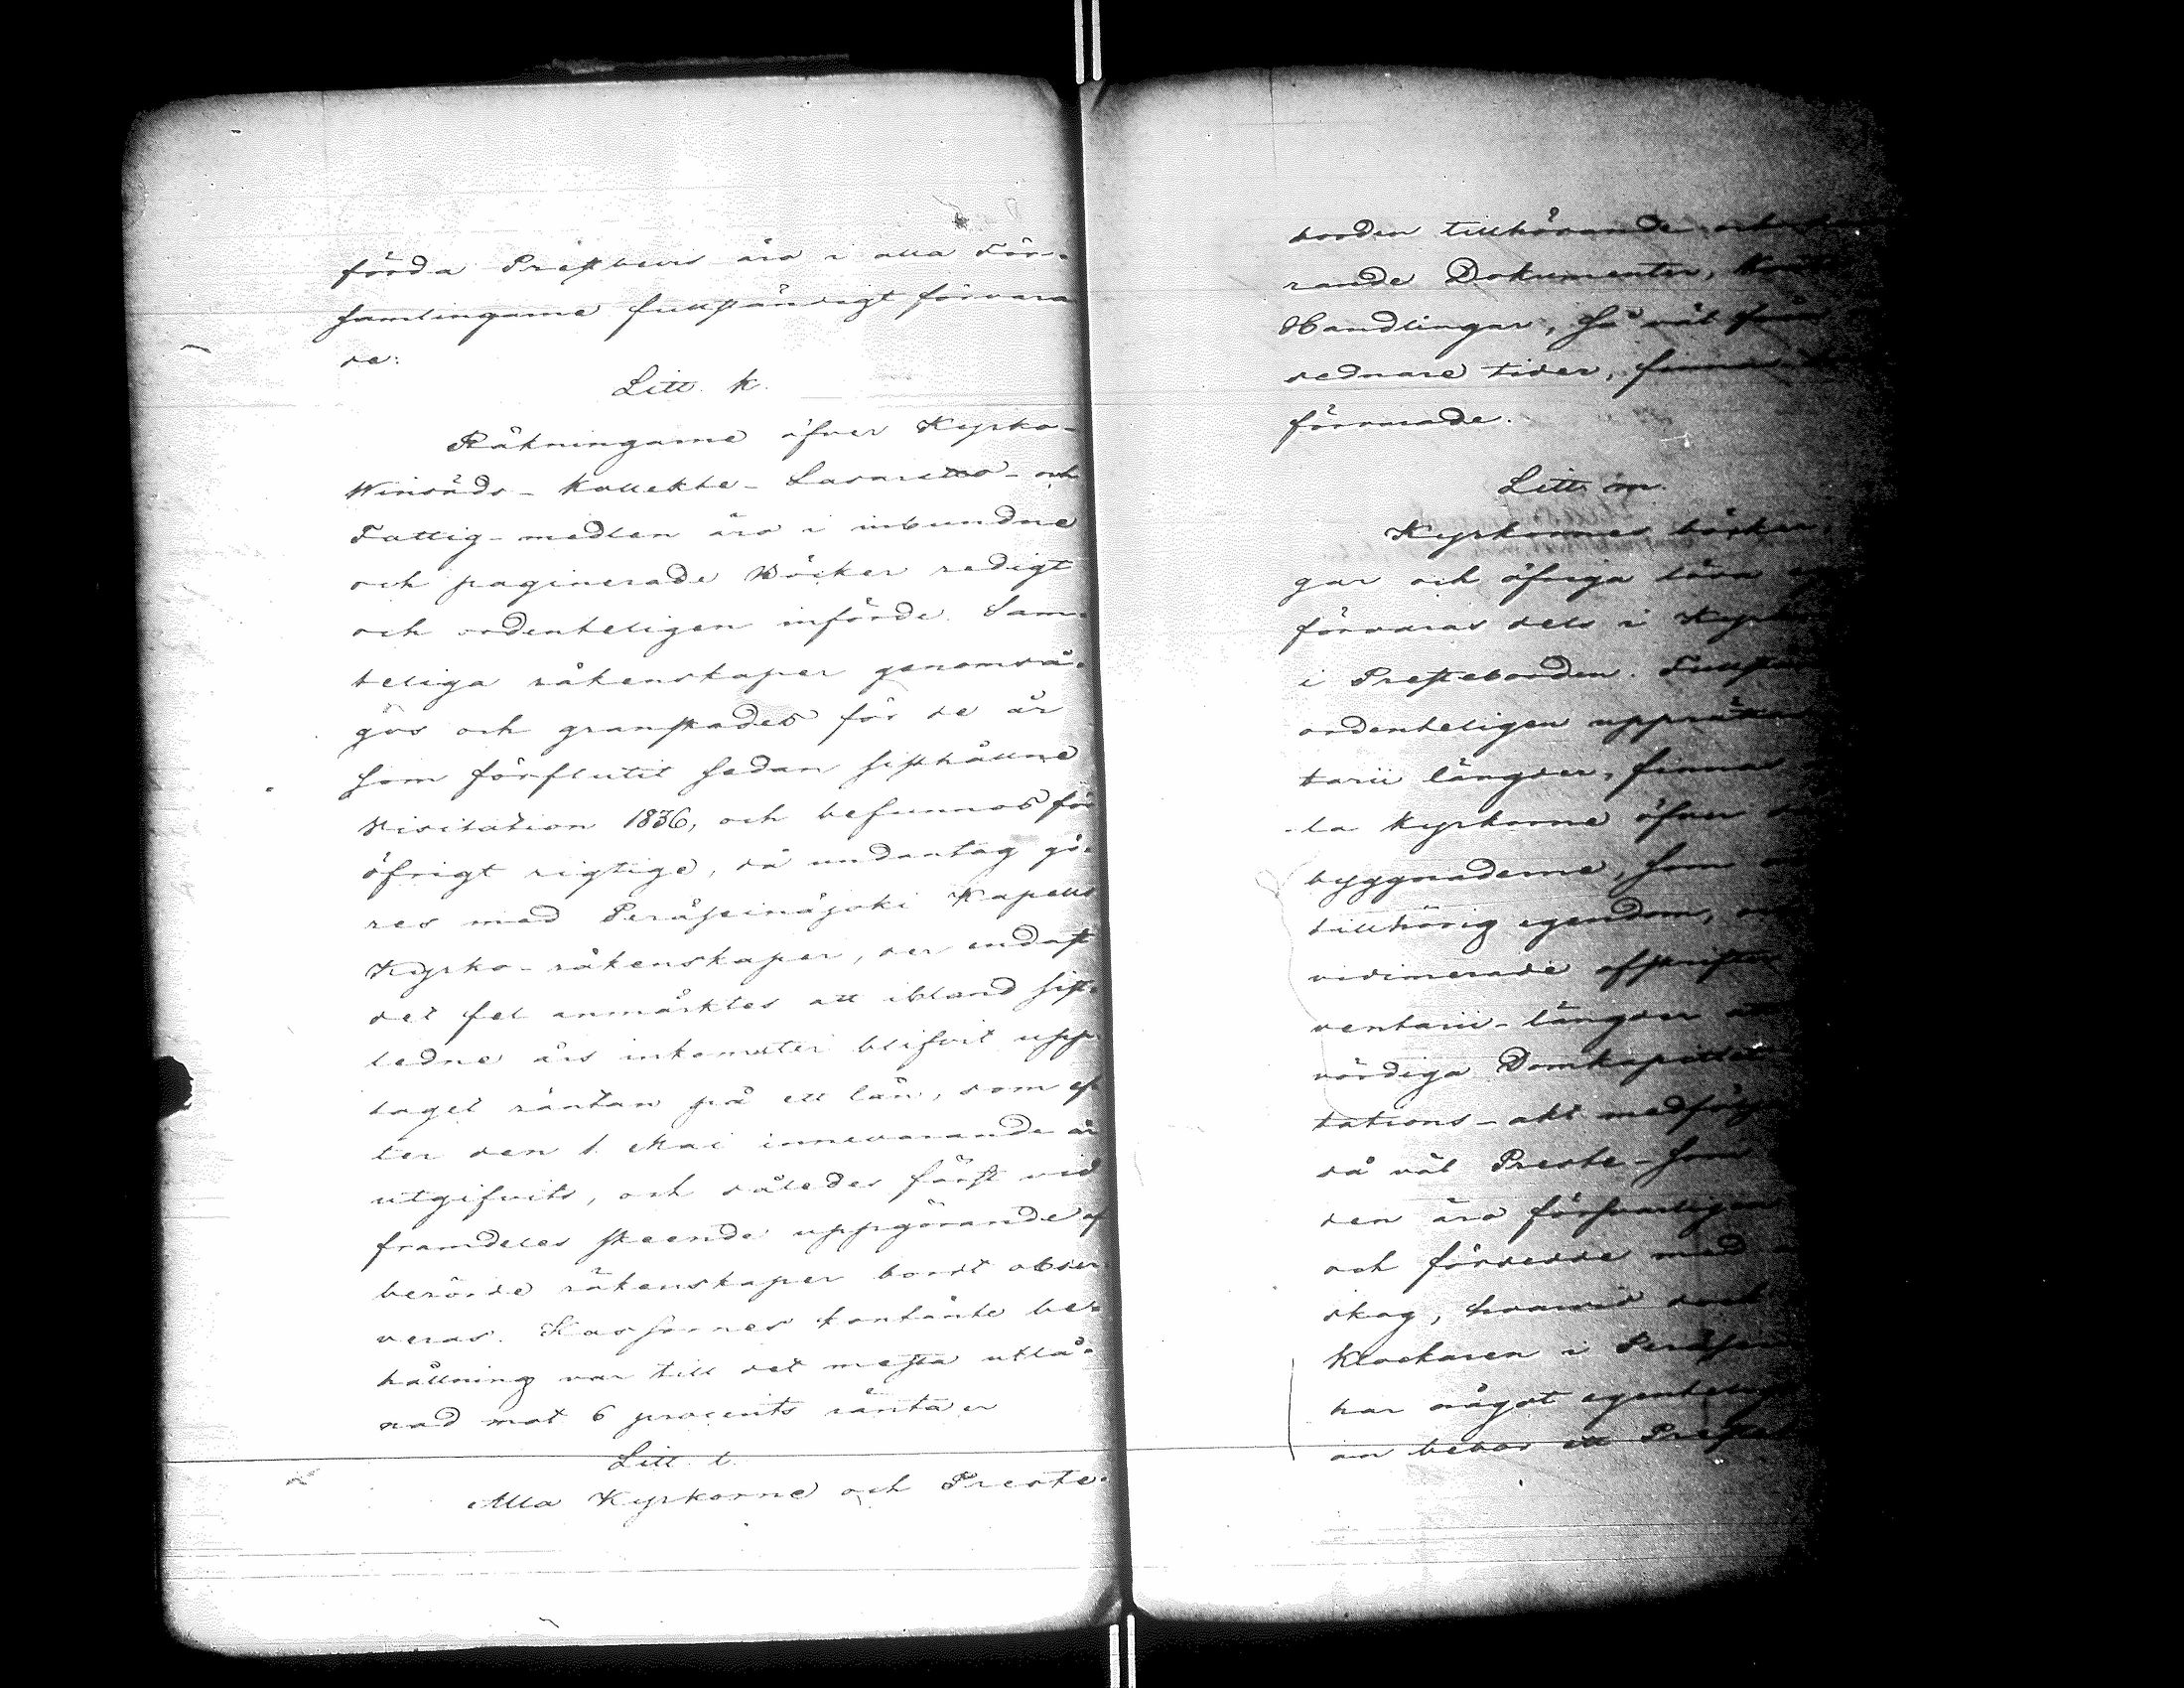 förda Prestbevis äro i alla För-
samlingarne fullständigt förvara
de:
Litt. k.
Räkningarne öfver Kyrko-
Winsäds- Kollekte- Lasaretts- och
Fattig-medlen äro i inbundne
och paginerade Böcker redigt
och ordenteligen införde. Sam-
teliga räkenskaper genomså-
gos och granskades för de år
som förflutit sedan sisthållne
Visitation 1836, och befunnos för
öfrigt rigtige, då undantag gö-
res med Peräseinäjoki Kapells
Kyrko-räkenskaper, der endast
det fel anmärktes att ibland sist-
ledne års inkomster blifvit upp
taget räntan på ett lån, som ef
ter den 1. Mai innevarande år
utgifvits, och således först vid
framdeles skeende uppgörande af
berörde räkenskaper bordt obser
veras. Kassornes kontante be-
hållning var till det mesta utlå-
nad mot 6 procents ränta
Litt. l.
Alla Kyrkorne och Preste-
borden tillhörande och
rande Dokumenter,
Handlingar, så väl från
sednare tider, finnas
förvarade.
Litt. m.
Kyrkornes böcker,
gar och öfriga lösa
förvaras dels i
i Presteborden.
ordenteligen
tarii längder, finnas
-la Kyrkorne öfver
byggnaderne, som
tillhörig egendom,
vidimerade afskrifter
ventarii-längder
vördiga Domkapitlet
tations-akt
så väl Preste- som
den äro försvarligen
och försedde med
skog, hvarvid
Klockaren i
har något
än bebor ett